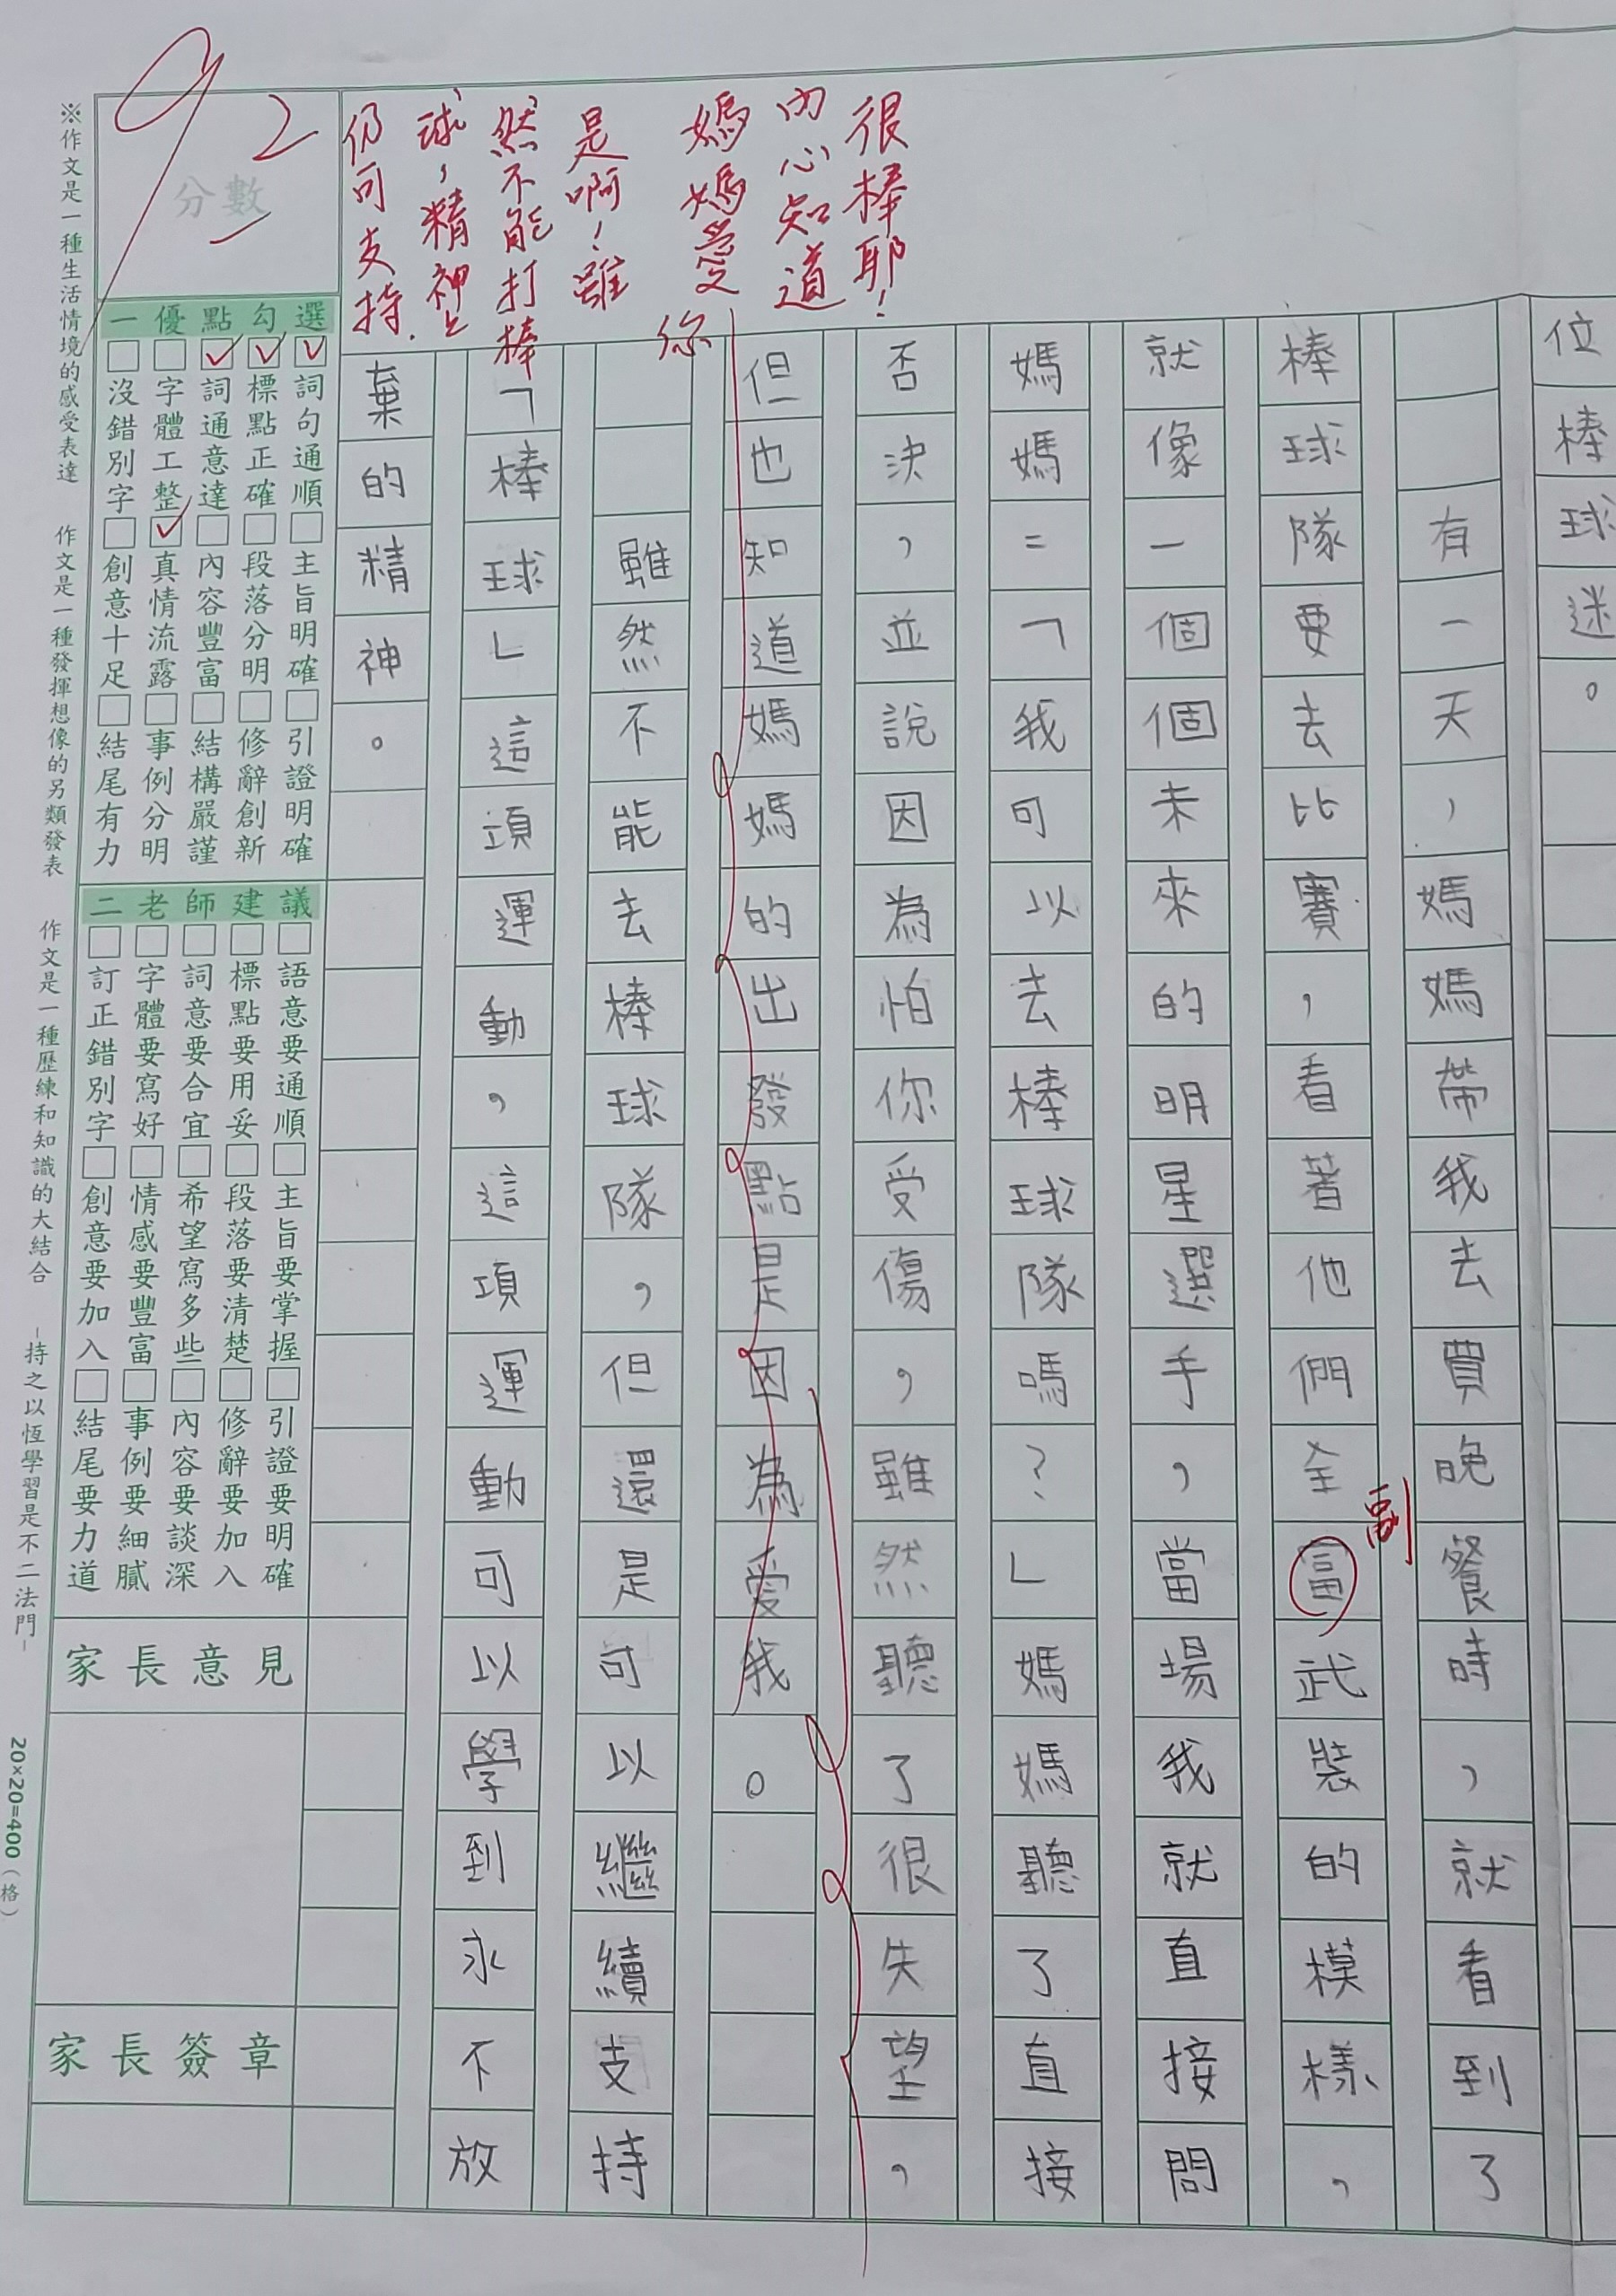 位棒球迷。
有一天，媽媽帶我去買晚餐時，就看到了
棒球隊要去比賽，看著他們全畐武裝的模樣，
副
就像一個個未來的明星選手，當場我就直接問
媽媽：「我可以去棒球隊嗎？」媽媽聽了直接
否決，並說因為怕你受傷，雖然聽了很失望，
但也知道媽媽的出發點是因為愛我。
雖然不能去棒球隊，但還是可以繼續支持
「棒球」這項運動，這項運動可以學到永不放
棄的精神。
很棒耶！
內心知道
媽媽愛
你
是啊！雖
然不能打棒
球，精神上
仍可支持.
92
分數
一優點勾選
詞句通順
標點正確
詞通意達
字體工整
沒錯別字
主旨明確
段落分明
內容豐富
真情流露
創意十足
引證明確
修辭創新
結構嚴謹
事例分明
結尾有力
二老師建議
語意要通順
標點要用妥
詞意要合宜
字體要寫好
訂正錯別字
主旨要掌握
段落要清楚
希望寫多些
情感要豐富
創意要加入
引證要明確
修辭要加入
內容要談深
事例要細膩
結尾要力道
家長意見
家長簽章
※作文是一種生活情境的感受表達
作文是一種發揮想像的另類發表
作文是一種歷練和知識的大結合
–持之以恆學習是不二法門–
20×20=400（格）